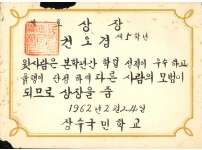 상장
권오경 제5학년
윗사람은 본학년간 학업 성적이 우수하고
품행이 단정하여 다른 사람의 모범이
되므로 상장을 줌
1962년 2월 24일
장수국민학교